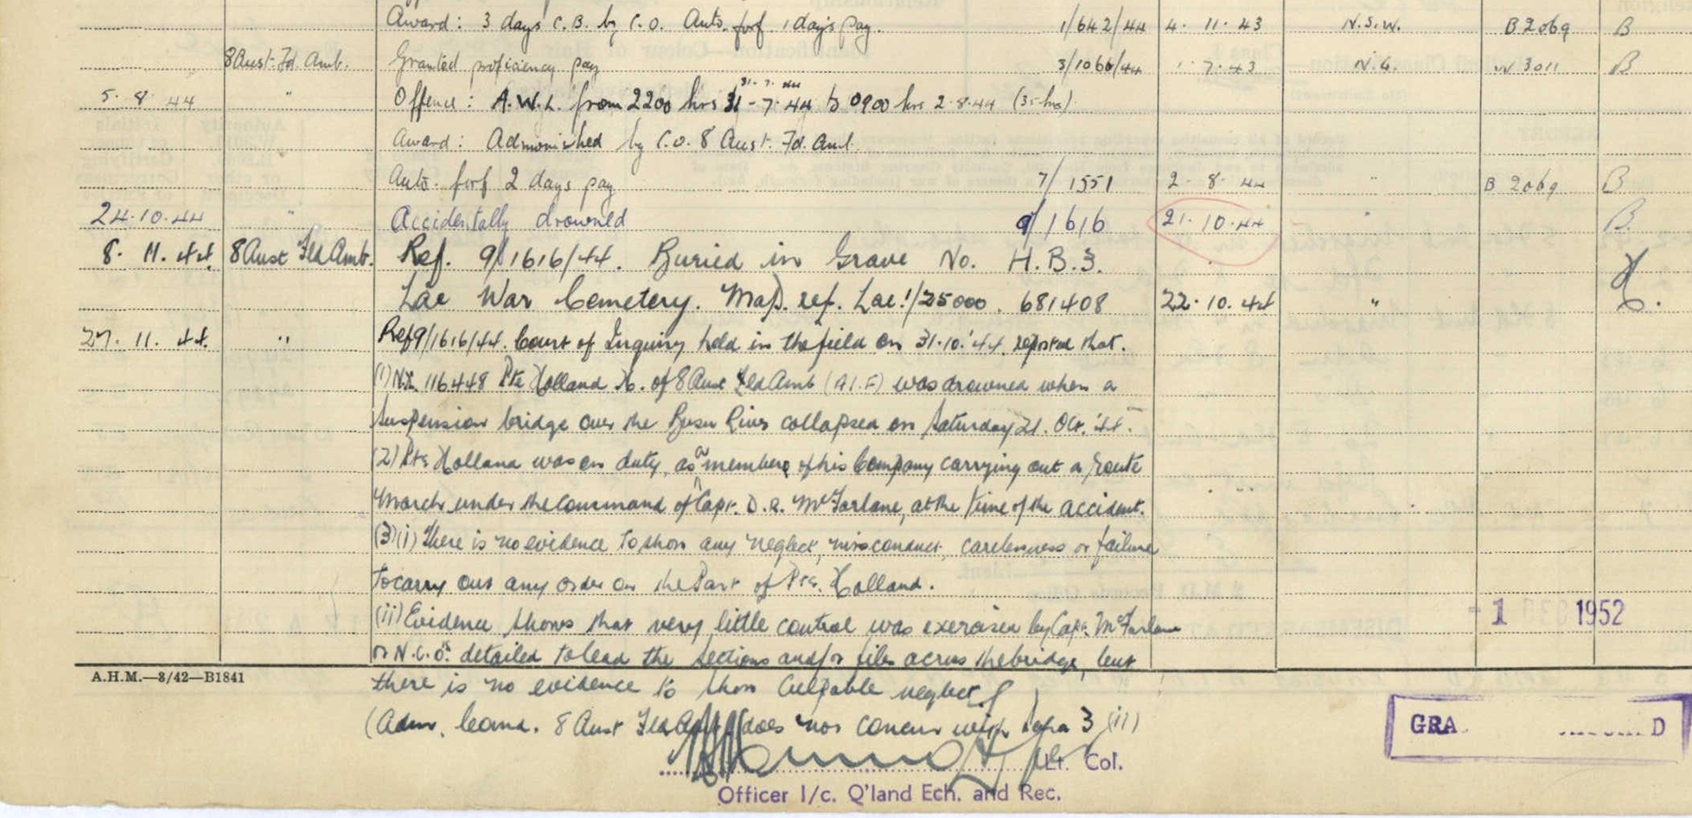 Award: 3 days C.B. by C.O. Auto. forf 1 days pay. 1/642/44 4. 11. 43 N.S.W. B 2069 B
8 Aust. Fd. Amb. Granted proficiency pay 3/1066/44 7. 43 N.G. W 3011 B
31. 7. 44
5. 8. 44 " Offence: A.W.L. from 2200 hrs 31-7.44 to 0900 hrs 2.8.44 (35 hrs)
Award: Admonished by C.O. 8 Aust. Fd. Amb.
Auto. forf 2 days pay 7/1551 2. 8. 44 " B 2069 B
24.10.44 " Accidentally drowned 9/1616 21. 10. 44 " B.
8. 11. 44. 8 Aust Fld Amb. Ref. 9/1616/44. Buried in Grave No. H.B.3.
Lae War Cemetery. Map. ref. Lae 1/25000. 681408 22. 10. 44 "
27. 11. 44. " Ref 9/1616/44. Court of Inquiry held in the field on 31.10.'44. reported that.
(1) NX 116448 Pte Holland H. of 8 Aust Fld Amb (A.I.F) was drowned when a
Suspension bridge over the Busu River collapsed on Saturday 21. Oct. '44.
(2) Pte Holland was on duty, as a member of his Company carrying out a Route
March under the command of Capt. D.R. McFarlane, at the time of the accident.
(3)(i) There is no evidence to show any neglect, misconduct, carelessness or failure
to carry out any order on the Part of Pte. Holland.
(ii) Evidence shows that very little control was exercised by Capt. McFarlane
or N.C.O's. detailed to lead the sections and/or files across the bridge, but
- 1 1952
A.H.M.—3/42—B1841
there is no evidence to show Culpable neglect.
(Adm. Comd. 8 Aust Fld does not concur with para 3 (ii))
GRA D
Lt. Col.
Officer I/c. Q'land Ech. and Rec.